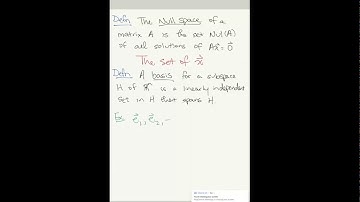 Defn The Null space of a
matrix A is the set Nul(A)
of all solutions of Ax⃗ = 0⃗
The set of x⃗
Defn. A basis for a subspace
H of ℝⁿ is a linearly independent
set in H that spans H
Ex e⃗₁, e⃗₂, -